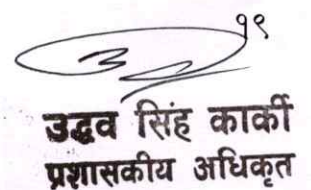 १९
उद्धव सिंह कार्की
प्रशासकीय अधिकृत